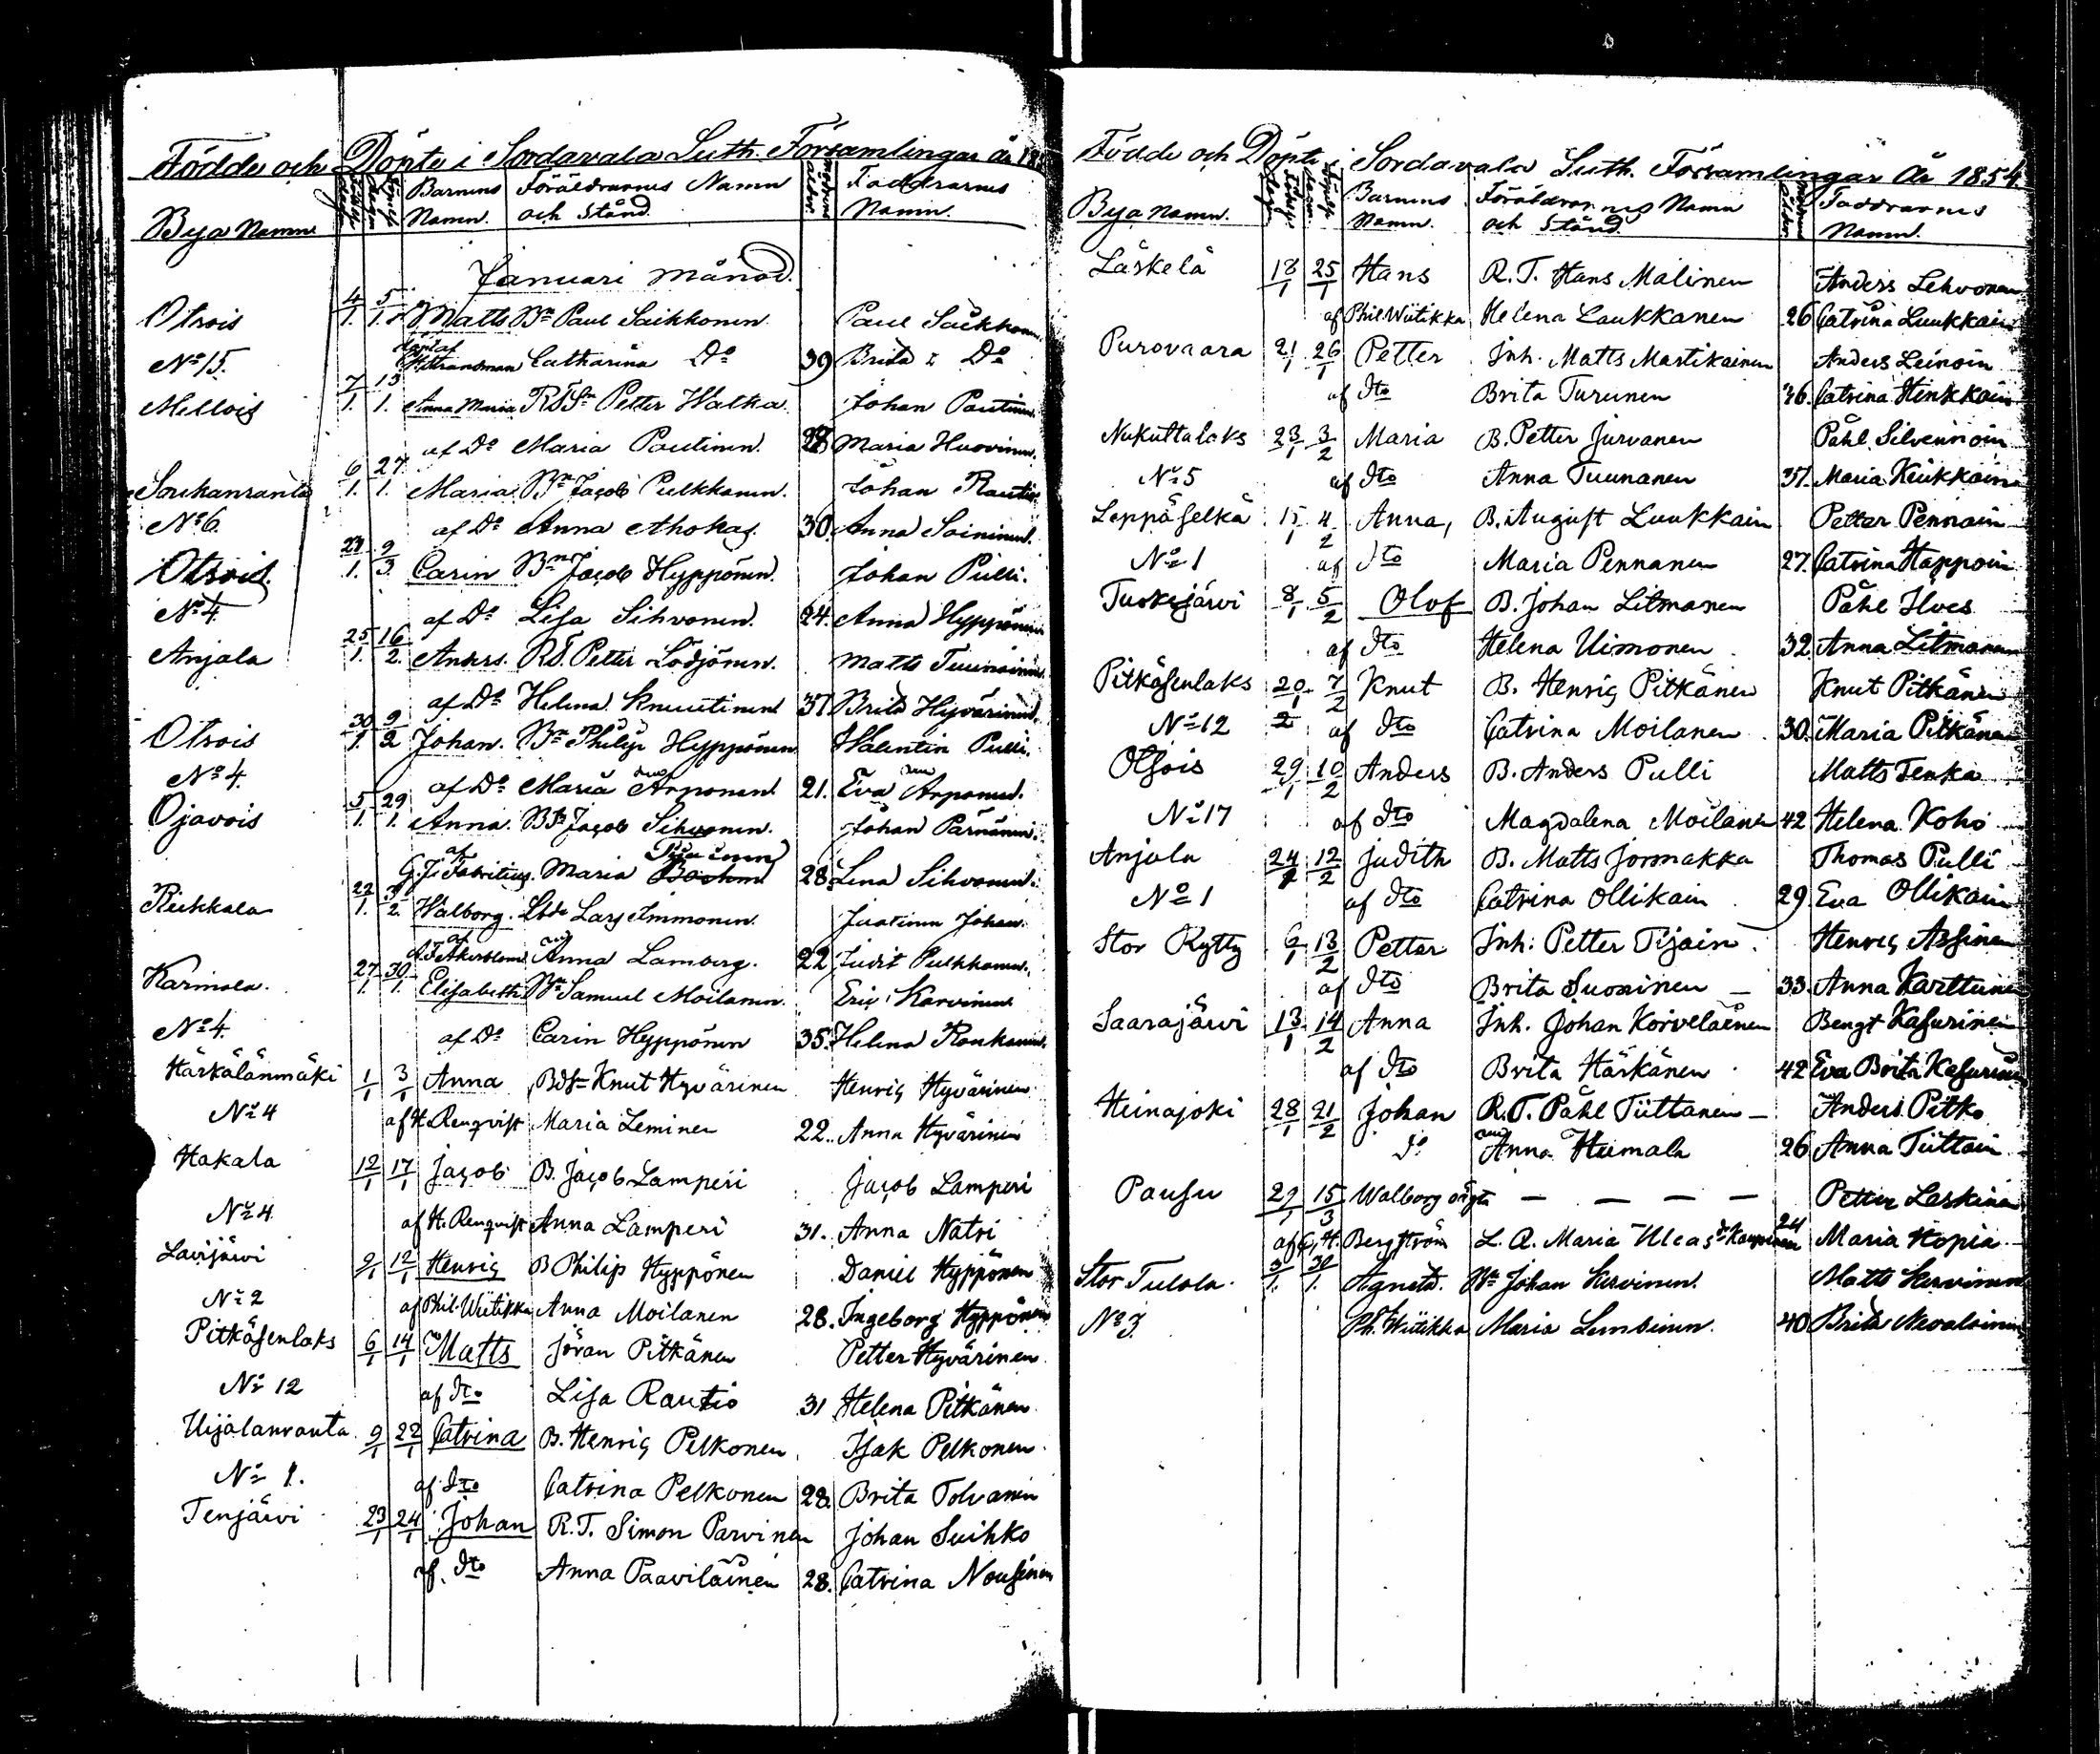 Födde och Döpte i Sordavala Luth. Församlingar år 18
Bya Namn Barnens Namn. Föräldrarnes Namn och Stånd. Faddrarnes Namn.
Januari månad.
Otsois 4/1. 5/1. Matts Bn Paul Saikkonen Paul Saikkonen
No 15. döpt af Strandman Catharina Do 39 Brita Do
Mellois 7/1. 13/1. Anna Maria Petter Walka Johan Pautinen
af Do Maria Pautinen. 28 Maria Huovinen.
Soukanranta 6/1. 27/1. Maria Bn Jacob Pulkkonen. Johan Rautio
No 6. af Do Anna Ahokas. 30. Anna Soininen.
Otsois 27/1. 9/3 Carin Bn Jacob Hyppönen. Johan Pulli.
No 4. af Do Lisa Sihvonen. 24. Anna Hyppönen
Anjala 25/1. 16/2. Anders. R.T. Petter Lodjonen. Matts Tuunainen
af Do Helena Knuutinen 37. Brita Hyvärinen.
Otsois 30/1. 9/2 Johan. Bn Philip Hyppönen Walentin Pulli.
No 4. af Do Maria Arponen 21. Eva Arponen.
Ojavois 5/1. 29/1. Anna. Jacob Sihvonen. Johan Pärnänen.
af G. J. Fabritius. Maria 28. Lena Sihvonen.
Riekkala 22/1. 3/2. Walborg. Lars Immonen. Juatinen Johan.
af Åkerblom Anna Lamberg. 22 Judit Pulkkonen.
Karmala. 27/1. 30/1. Elisabeth Bn Samuel Moilanen Eric Karvinen
No 4. af Do Carin Hyppönen 35. Helena Ronkanen.
Härkälänmäki 1/1 3/1 Anna Knut Hyvärinen Henric Hyvärinen
No 4 af H. Renqvist Maria Leminen 22. Anna Hyvärinen
Hakala 12/1 17/1 Jacob B. Jacob Lamperi Jacob Lamperi
No 4 af H. Renqvist Anna Lamperi 31. Anna Natri
Lavijärvi 9/1 12/1 Henric B Philip Hyppönen Daniel Hyppönen
No 2 af Phil. Wiitikka Anna Moilanen 28. Ingeborg Hyppönen
Pitkäsenlaks 6/1 14/1 Matts Jöran Pitkänen Petter Hyvärinen
No 12 af Dto Lisa Rautio 31 Helena Pitkänen
Uijalanranta 9/1 22/1 Catrina B. Henric Pelkonen Isak Pelkonen
No 1. af Dto Catrina Pelkonen 28. Brita Tolvanen
Tenjärvi 23/1 24/1 Johan R.T. Simon Parvinen Johan Suihko
af. Dto Anna Paavilainen 28. Catrina Nousinen
Födde och Döpte i Sordavala Luth. Församlingar År 1854.
Bya Namn. Barnens Namn. Föräldrarnes Namn och Stånd. Faddrarnes Namn.
Läskelä 18/1 25/1 Hans R.T. Hans Malinen Anders Lehvonen
af Phil Wiitikka Helena Laukkanen 26 Catrina Luukkain
Purovaara 21/1 26/1 Petter Inh. Matts Martikainen Anders Leinoin
af Dto Brita Turunen 36. Catrina Henkkain
Nukuttalaks 23/1 3/2 Maria B. Petter Jurvanen Påhl Silvennoin
No 5 af Dto Anna Tuunanen 37. Maria Keukkain
Leppäselkä 15/1 4/2 Anna, B. August Luukkain Petter Pennain
No 1 af Dto Maria Pennanen 27. Catrina Happoin
Tuokejärvi 8/1 5/2 Olof B. Johan Litmanen Påhl Ilves
af Dto Helena Uimonen 32. Anna Litmanen
Pitkäsenlaks 20/1 7/2 Knut B. Henric Pitkänen Knut Pitkänen
No 12 2 af Dto Catrina Moilanen 30. Maria Pitkänen
Otsois 29/1 10/2 Anders B. Anders Pulli Matts Tenka
No 17 af Dto Magdalena Moilanen 42 Helena Koho
Anjala 24/1 12/2 Judith B. Matts Jormakka Thomas Pulli
No 1 af Dto Catrina Ollikain 29. Eva Ollikain
Stor Rytty 6/1 13/2 Petter Inh: Petter Tijain. Henric Assinen
af Dto Brita Suoninen 33. Anna Karttunen
Saarajärvi 13/1 14/2 Anna Inh. Johan Korvelainen Bengt Kasurinen
af Dto Brita Härkänen 42 Eva Brita Kasurinen
Heinajoki 28/1 21/2 Johan R.T. Påhl Tiittanen — Anders Pitko
Do Anna Humala 26 Anna Tiittain
Pausu 29/1 15/3 Walborg oägta — — — — Petter Laskinen
af G. H. Bergström L. Q. Maria 24 Maria Hopia
Stor Tulola. 3/1. 30/1. Agneta. Johan Kervinen. Matts Kervinen
No 3. Ph. Wiitikka Maria Lembinen. 40. Brita Nevalainen